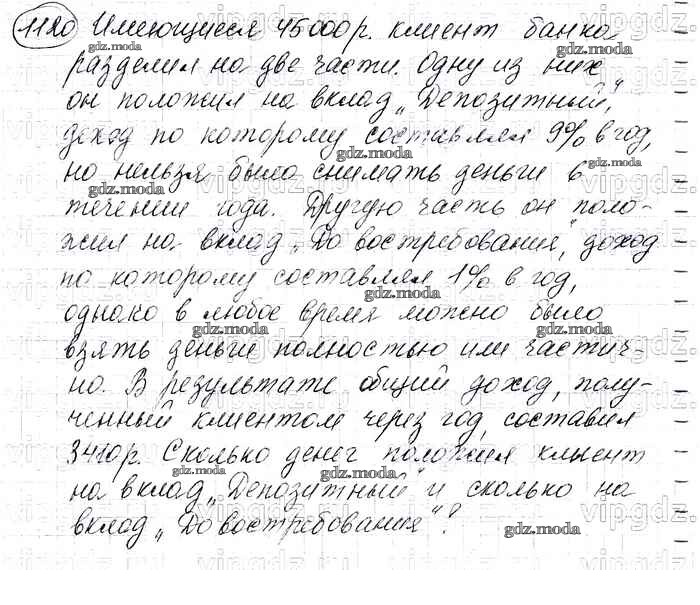 1120 Имеющиеся 45000р. клиент банка
разделил на две части. Одну из них
он положил на вклад „Депозитный",
доход по которому составлял 9% в год,
но нельзя было снимать деньги в
течении года. Другую часть он поло-
жил на вклад „До востребования", доход
по которому составлял 1% в год,
однако в любое время можно было
взять деньги полностью или частич-
но. В результате общий доход, полу-
ченный клиентом через год, составил
3410р. Сколько денег положил клиент
на вклад „Депозитный" и сколько на
вклад „До востребования"?